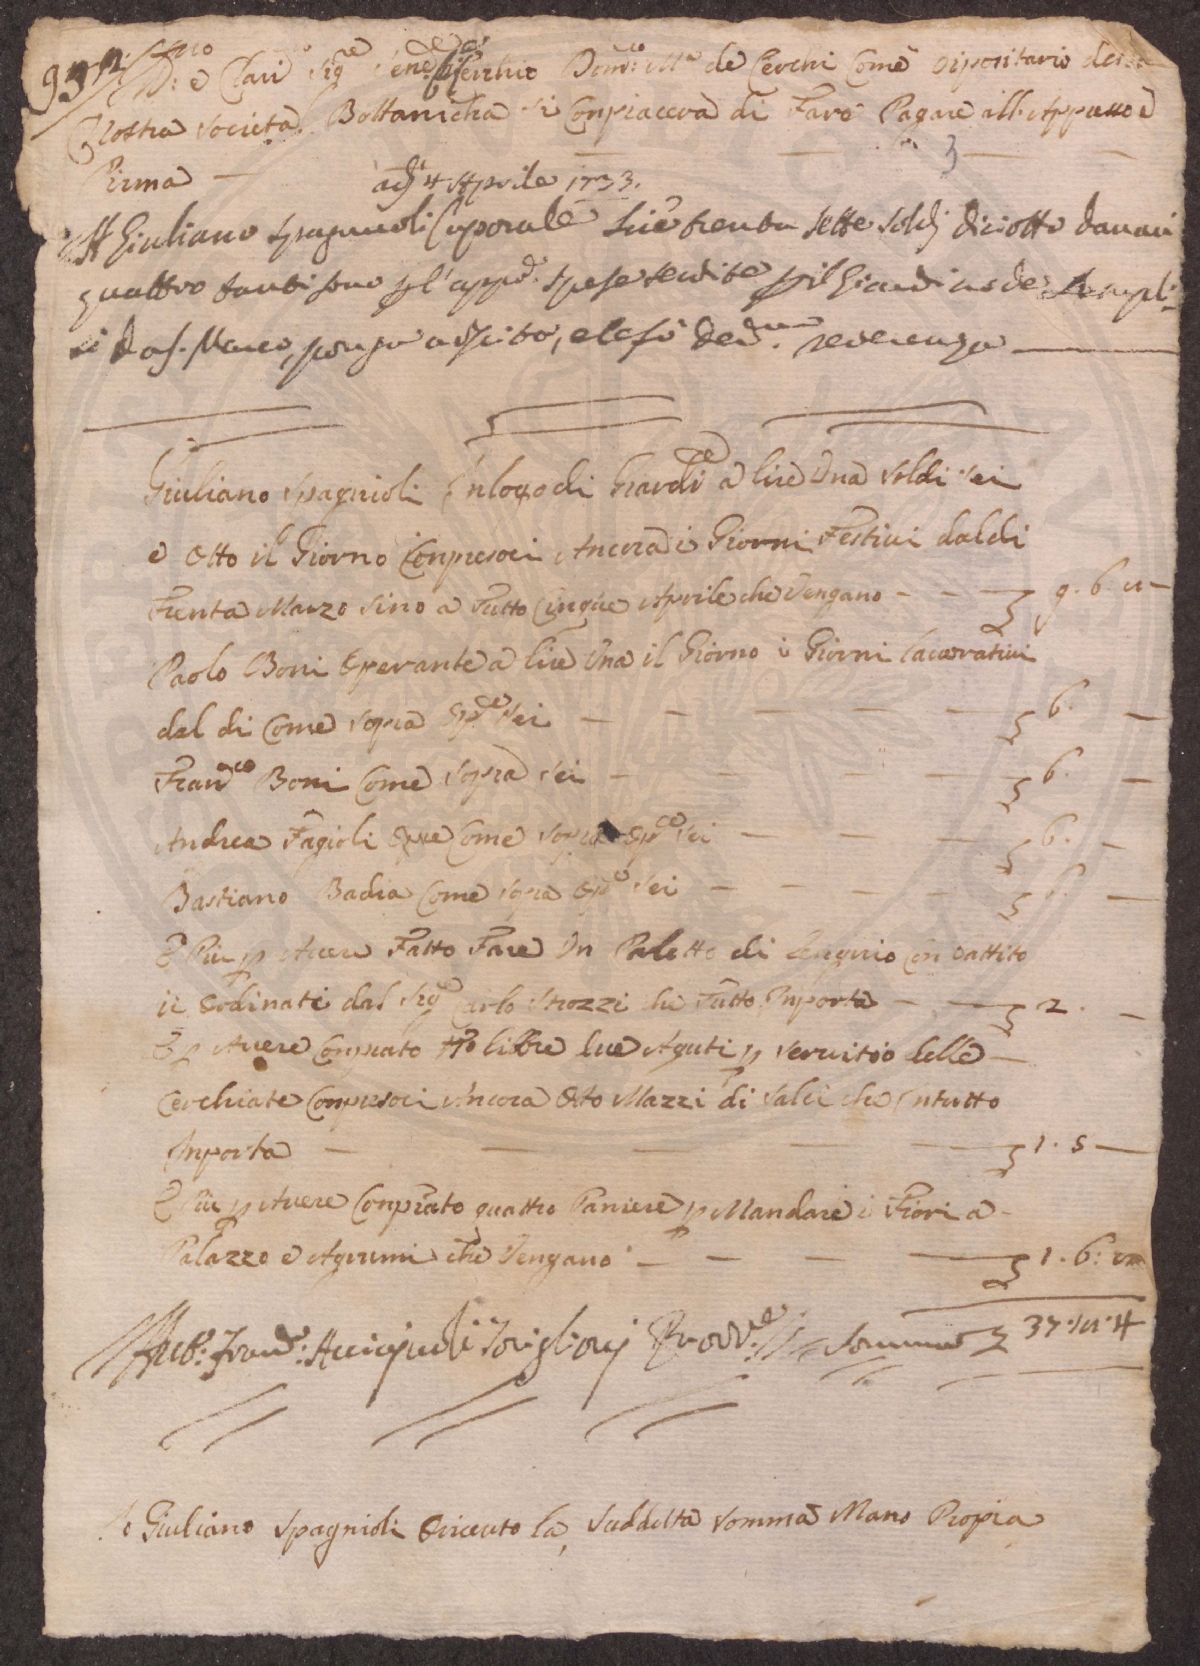 Clari Sigre Dom: Ma de Cerchi Come Dipositario della
Nostra Società Bottanicha si Conpiacerà di Fare Pagare all'Appiè
Firma adì 4 Aprile 1733.
A Giuliano Spagnuoli Caporale Lire trenta sette soldi diciotto danari
quattro tanti sono p l'appè spese seguite p il Giardino de Sempli:
ci da S. Marco, ponga a escito, e le fò dev.ma reverenza
Giuliano Spagnioli Inlogo di Giardce a lire Una Soldi Sei
e Otto il Giorno Conpresoci Ancora i Giorni Festivi dal di
Trenta Marzo Sino a Tutto Cinque Aprile che Vengano - - - 9. 6
Paolo Boni Operante a lire Una il Giorno i Giorni lavorativi
dal di Come Sopra Opce Sei - - - - - 6. -
Franco Boni Come Sopra Sei - - - - 6. -
Andrea Fagioli Opre Come Sopra Opce Sei - - - 6. -
Bastiano Badia Come Sopra Opce Sei - - - - 6. -
E Piu p Avere Fatto Fare Un Paletto di con
ordinate dal Sigre Carlo Strozzi che Tutto Inporta - - 2. -
E p Avere Conprato libbre due Aguti p Servitio delle
Cerchiate Conpresoci Ancora Otto Mazzi di Salci che Intutto
Inporta - - - - - 1. 5 -
E Piu p Avere Conprato quattro Paniere p Mandare i Fiori a
Palazzo e Agrumi che Vengano - - - - 1. 6:
Franco: Acciajuoli Provvre Somma 37. 18. 4
Io Giuliano Spagnioli Oriceuto la Suddetta Somma Mano Propia